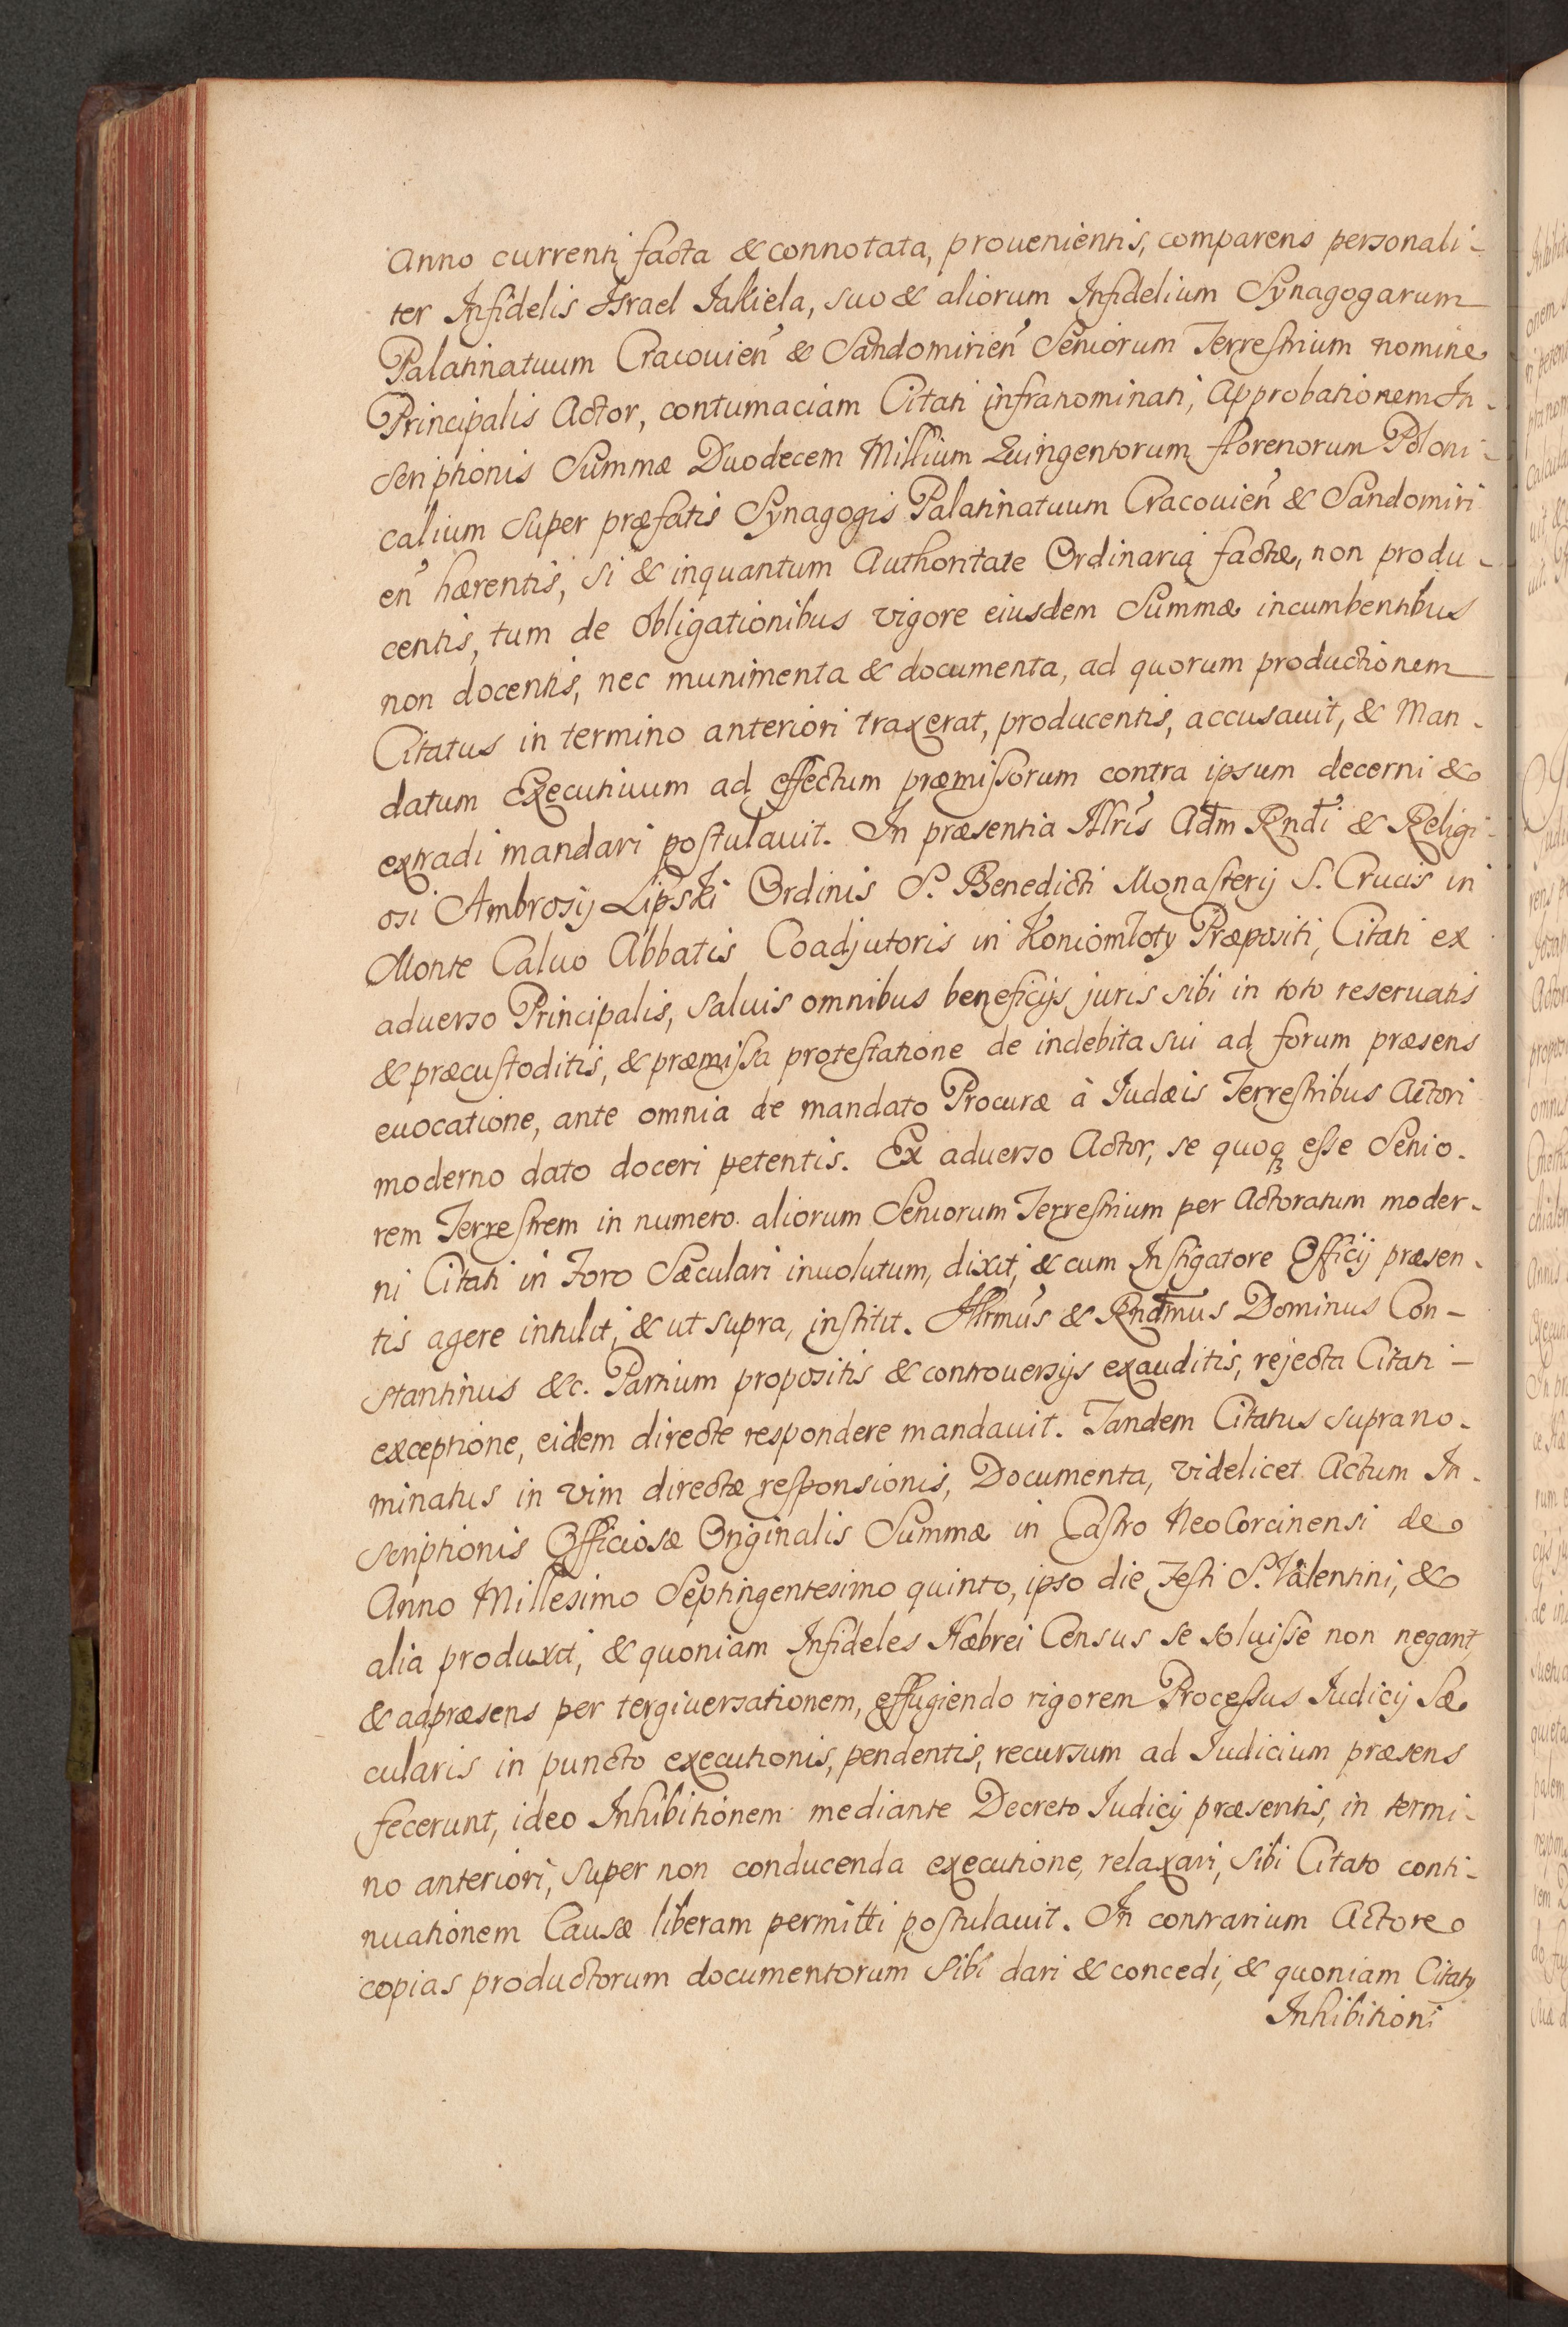 Anno currenti facta & connotata, prouenientis, comparens personali-
ter Infidelis Israel Iakiela, suo & aliorum Infidelium Synagogarum
Palatinatuum Cracouien̄ & Sandomirien̄ Seniorum Terrestrium nomine
Principalis Actor, contumaciam Citati infranominati, Approbationem In-
scriptionis Summæ Duodecem Millium Quingentorum florenorum Poloni-
calium super præfatis Synagogis Palatinatuum Cracouien̄ & Sandomiri
en̄ hærentis, si & inquantum Authoritate Ordinaria factæ, non produ-
centis, tum de obligationibus vigore eiusdem Summæ incumbentibus
non docentis, nec munimenta & documenta, ad quorum productionem
Citatus in termino anteriori traxerat, producentis, accusauit, & Man-
datum Executiuum ad effectum præmissorum contra ipsum decerni &
extradi mandari postulauit. In præsentia Illris Adm Rndi & Religi-
osi Ambrosij Lipski Ordinis S. Benedicti Monasterij S. Crucis in
Monte Caluo Abbatis Coadjutoris in Koniomłoty Præpositi, Citati ex
aduerso Principalis, saluis omnibus beneficijs juris sibi in toto reseruatis
& præcustoditis, & præmissa protestatione de indebita sui ad forum præsens
euocatione, ante omnia de mandato Procuræ à Iudæis Terrestribus Actori
moderno dato doceri petentis. Ex aduerso Actor, se quoq esse Senio-
rem Terrestrem in numero aliorum Seniorum Terrestrium per Actoratum moder-
ni Citati in Foro Sæculari inuolutum, dixit, & cum Instigatore Officij præsen-
tis agere intulit, & ut supra, institit. Illrmus & Rndmus Dominus Con-
stantinus &c. Partium propositis & controuersijs exauditis, rejecta Citati -
exceptione, eidem directe respondere mandauit. Tandem Citatus suprano-
minatus in vim directæ responsionis, Documenta, videlicet Actum In-
scriptionis Officiosæ Originalis Summæ in Castro NeoCorcinensi de
Anno Millesimo Septingentesimo quinto, ipso die Festi S. Valentini, &
alia produxit, & quoniam Infideles Hæbrei Census se soluisse non negant,
& adpræsens per tergiuersationem, effugiendo rigorem Processus Iudicij Sæ
cularis in puncto executionis, pendentis, recursum ad Iudicium præsens
fecerunt, ideo Inhibitionem mediante Decreto Iudicij præsentis, in termi-
no anteriori, super non conducenda executione, relaxari, sibi Citato conti-
nuationem Causæ liberam permitti postulauit. In contrarium Actore
copias productorum documentorum sibi dari & concedi, & quoniam Citaty
Inhibitioni